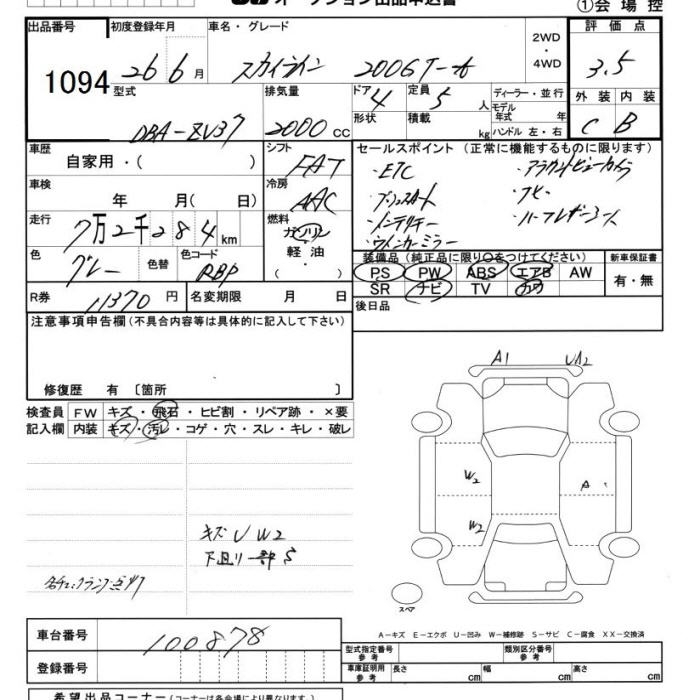 オークション出品申込書
①会場控
出品番号 初度登録年月 車名・グレード 2WD ・ 4WD 評価点
1094 26 6月 スカイライン 200GT-t 3.5
型式 排気量 ドア 4 定員 5 人 ディーラー・並行 外装 内装
DBA-ZV37 2000 cc 形状 積載 kg モデル年式 年 ハンドル 左・右 C B
車歴 自家用・( ) シフト FAT セールスポイント (正常に機能するものに限ります)
・ETC ・アラウンドビューカメラ
車検 年 月( 日) 冷房 AAC ・プッシュスタート ・ナビ
走行 7万2千284km 燃料 ガソリン 軽油 ・インテリキー ・ハーフレザーシート
・ウインカーミラー
色 グレー 色替 色コード RBP 装備品 (純正品に限り○をつけてください) 新車保証書
PS PW ABS エアB AW 有・無
R券 11370円 名変期限 月 日 SR ナビ TV カワ
後日品
注意事項申告欄 (不具合内容等は具体的に記入して下さい)
修復歴 有 〔箇所 〕
A1 UA2
検査員 FW キズ・飛石・ヒビ割・リペア跡・×要
記入欄 内装 キズ・汚レ・コゲ・穴・スレ・キレ・破レ
W2 A
W2
キズ U W2
下廻り一部S
スペア
A-キズ E-エクボ U-凹み W-補修跡 S-サビ C-腐食 XX-交換済
車台番号 100878
型式指定番号参考 類別区分番号参考
登録番号 車庫証明用参考 長さ cm 幅 cm 高さ cm
希望出品コーナー (コーナーは各会場により異なります)